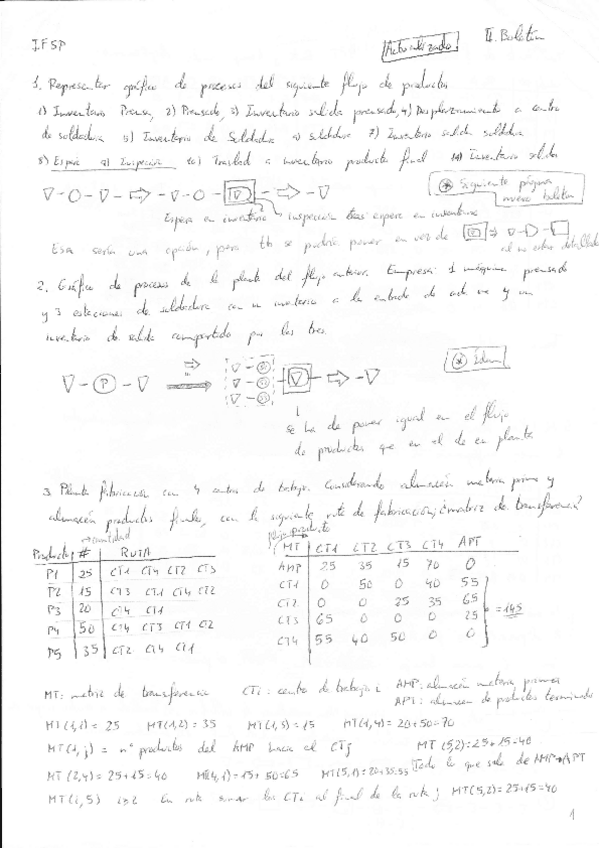 I.F.S.P Actualizado II. Boletín
1. Representar gráfico de procesos del siguiente flujo de productos
1) Inventario Prensa, 2) Prensado, 3) Inventario salida prensado, 4) Desplazamiento a centro
de soldadura 5) Inventario de Soldadura 6) soldadura 7) Inventario salida soldadura
8) Espera 9) Inspección 10) Traslado a inventario producto final 11) Inventario salida
* Siguiente página nuevo boletín
Espera en inventario inspección tras espera en inventario
Esa sería una opción, pero tb se podría poner en vez de
al no estar detallado
2. Gráfico de procesos de la planta del flujo anterior. Empresa: 1 máquina prensado
y 3 estaciones de soldadura con un inventario a la entrada de cada una y un
inventario de salida compartido por las tres.
P
* Idem
se ha de poner igual en el flujo
de productos que en el de en planta
3. Planta fabricación con 4 centros de trabajo. Considerando almacén materia prima y
almacén productos finales, con la siguiente ruta de fabricación, ¿matriz de transferencia?
cantidad
Producto # RUTA
P1 25 CT1 CT4 CT2 CT3
P2 15 CT3 CT1 CT4 CT2
P3 20 CT4 CT1
P4 50 CT4 CT3 CT1 CT2
P5 35 CT2 CT4 CT1
MT CT1 CT2 CT3 CT4 APT
AMP 25 35 15 70 0
CT1 0 50 0 40 55
CT2 0 0 25 35 65
CT3 65 0 0 0 25
CT4 55 40 50 0 0
= 145
MT: matriz de transferencia CTi: centro de trabajo i AMP: almacén materia primas
APT: almacen de productos terminados
MT(1,1) = 25 MT(1,2) = 35 MT(1,3) = 15 MT(1,4) = 20+50=70
MT(1,j) = nº productos del AMP hacia el CTj MT(5,2)=25+15=40
MT(2,4) = 25+15=40 MT(4,1)=15+50=65 MT(5,1)=20+35=55 Todo lo que sale de AMP→APT
MT(i,5) i≥2 En ruta sumar los CTi al final de la ruta; MT(5,2)=25+15=40
1